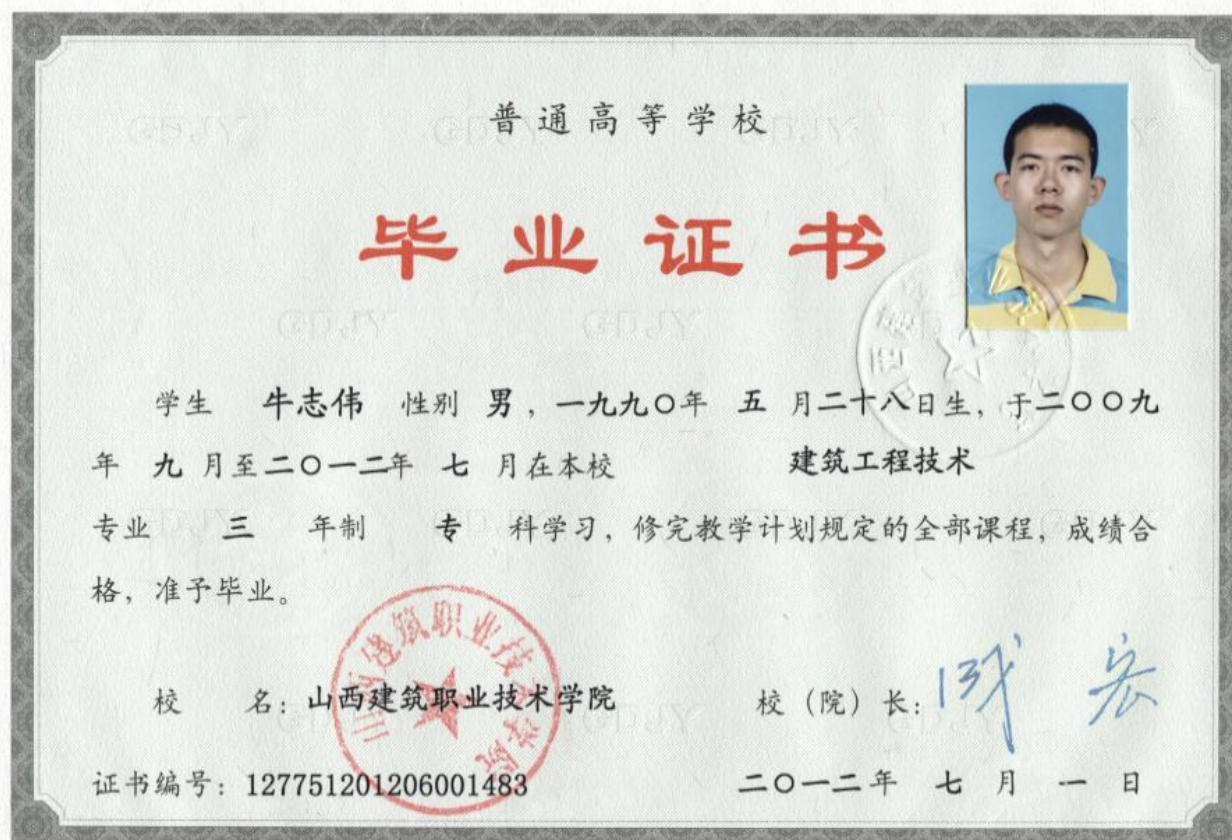 普通高等学校
毕业证书
学生 牛志伟 性别 男，一九九〇年 五 月二十八日生，于二〇〇九
年 九 月至二〇一二年 七 月在本校 建筑工程技术
专业 三 年制 专 科学习，修完教学计划规定的全部课程，成绩合
格，准予毕业。
山西建筑职业技术学院
校 名：山西建筑职业技术学院 校（院）长：
证书编号：127751201206001483 二〇一二年 七 月 一 日